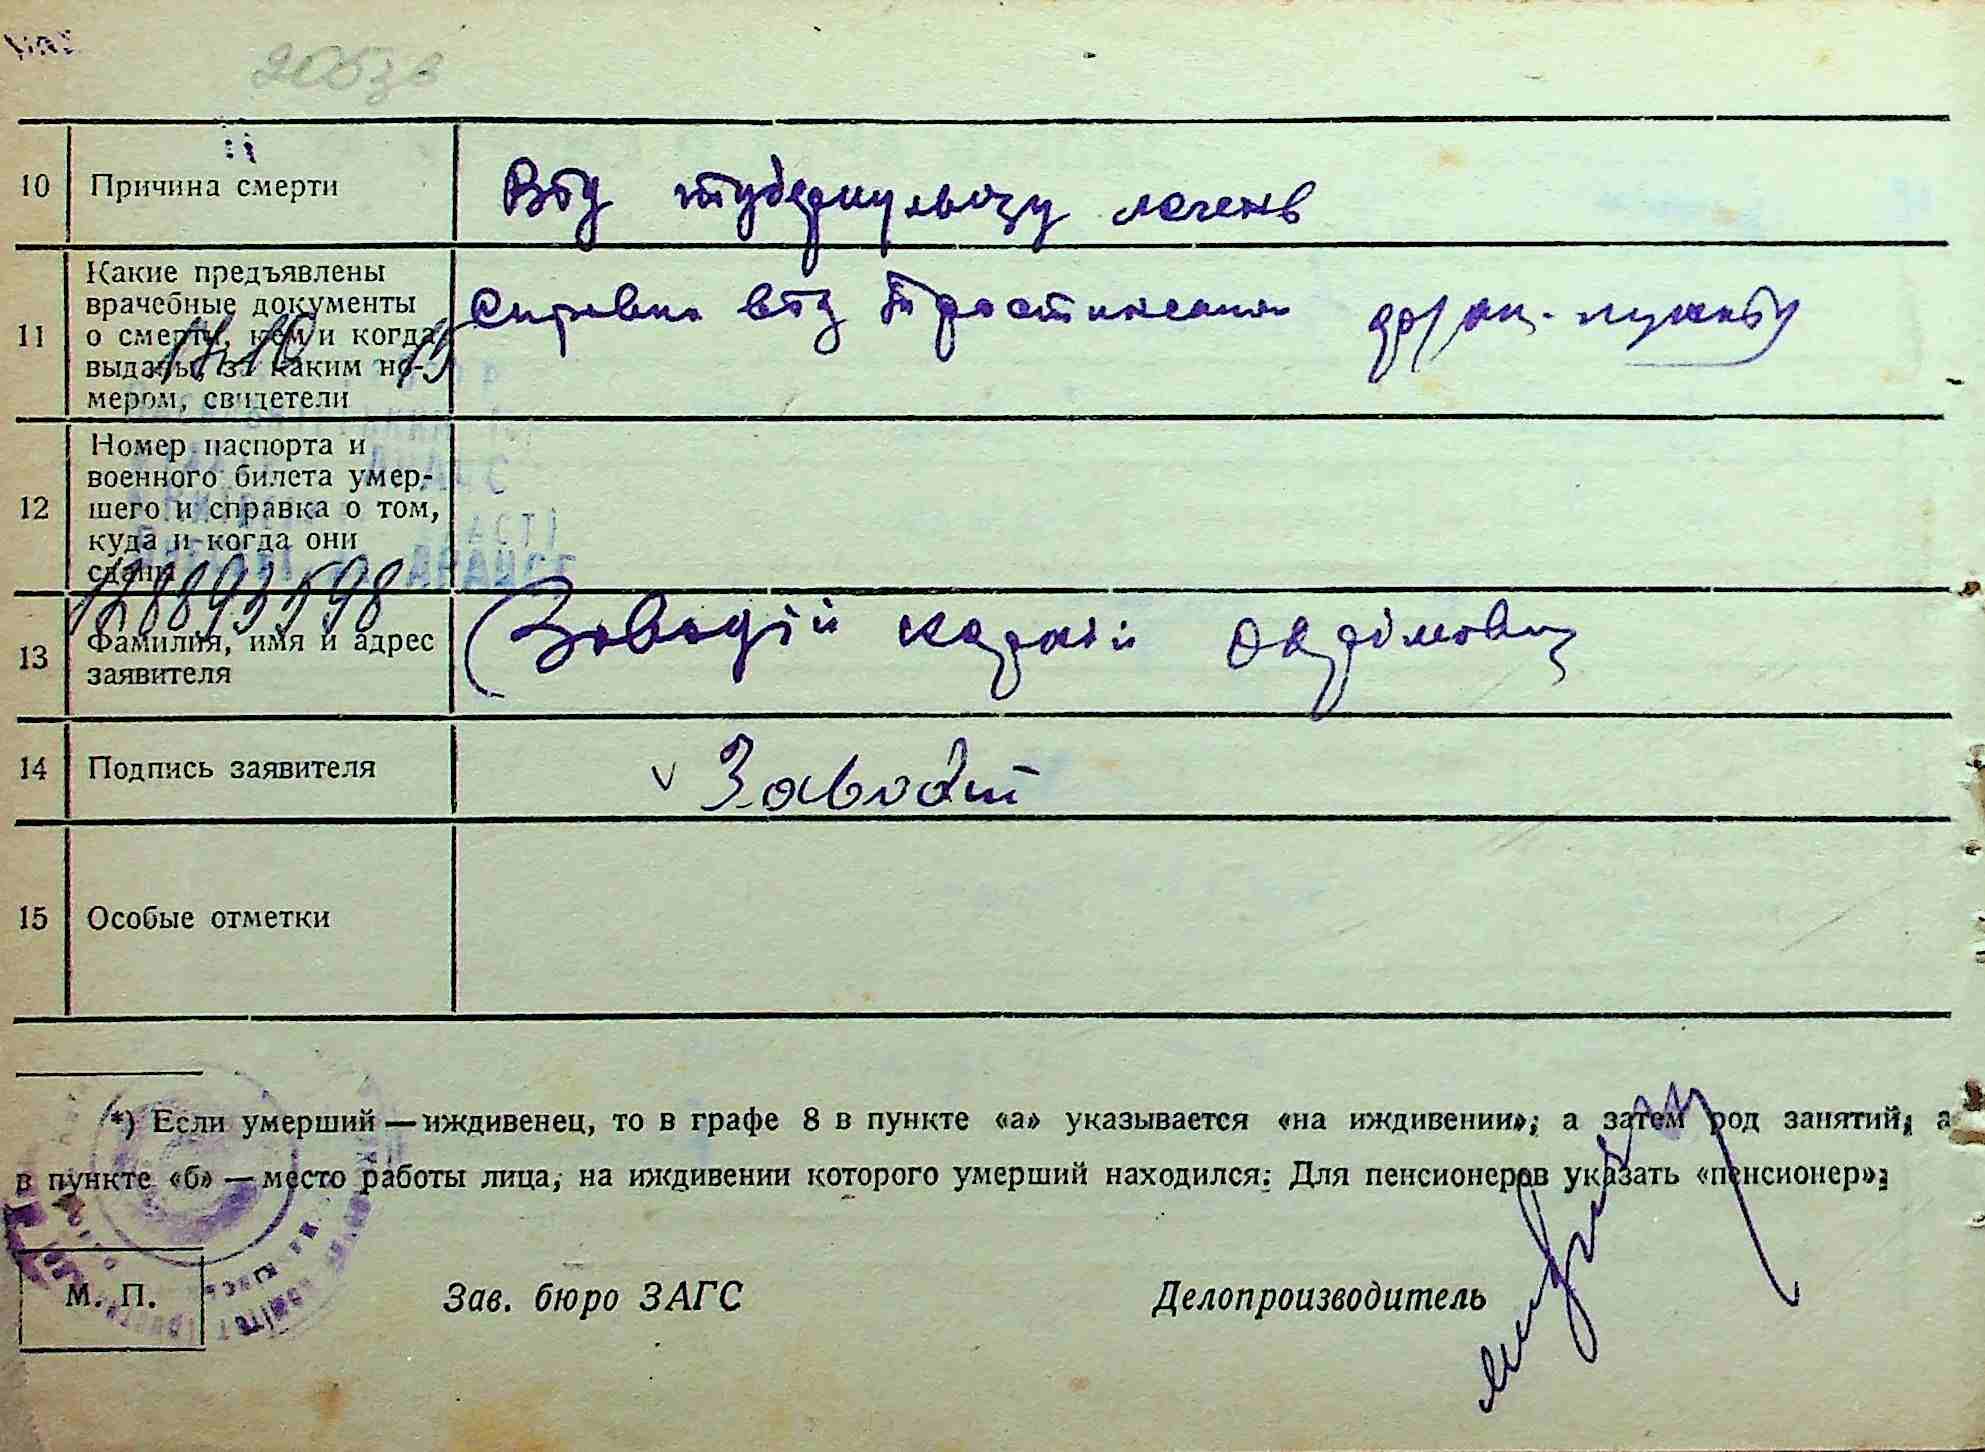 10 Причина смерти
Вод туберкульозу легенв
11 Какие предъявлены
врачебные документы
о смерти, кем и когда
выданы, за каким но-
мером, свидетели
Справка вод
12 Номер паспорта и
военного билета умер-
шего и справка о том,
куда и когда они
сданы
13 Фамилия, имя и адрес
заявителя
Заводій
14 Подпись заявителя
Заводій
15 Особые отметки
*) Если умерший — иждивенец, то в графе 8 в пункте «а» указывается «на иждивении», а затем род занятий, а
в пункте «б» — место работы лица, на иждивении которого умерший находился. Для пенсионеров указать «пенсионер».
М. П. Зав. бюро ЗАГС Делопроизводитель